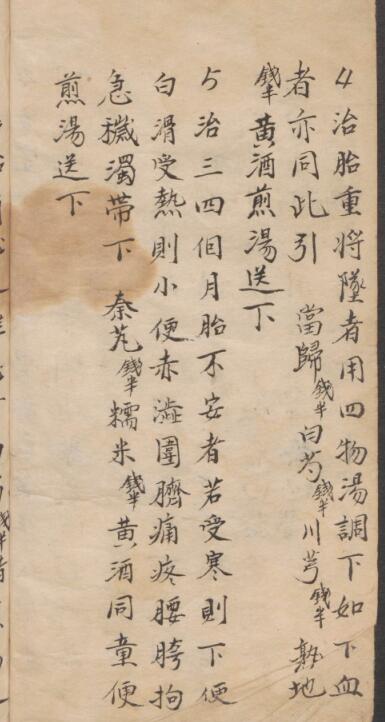 4治胎重將墜者用四物湯調下如下血
者亦同此引　當歸錢半白芍錢半川芎錢半熟地
錢半黄酒煎湯送下
5治三四個月胎不安者若受寒則下便
白滑受熱則小便赤澁圍臍痛疼腰胯拘
急穢濁帶下　秦艽錢半糯米錢半黄酒同童便
煎湯送下